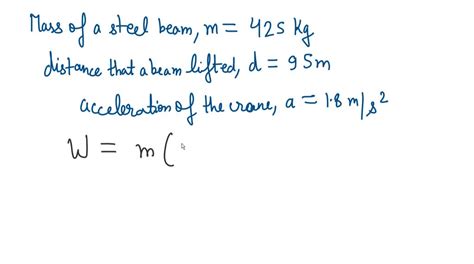 Mass of a steel beam, m = 425 Kg
distance that a beam lifted, d = 95m
acceleration of the crane, a = 1.8 m/s²
W = m (